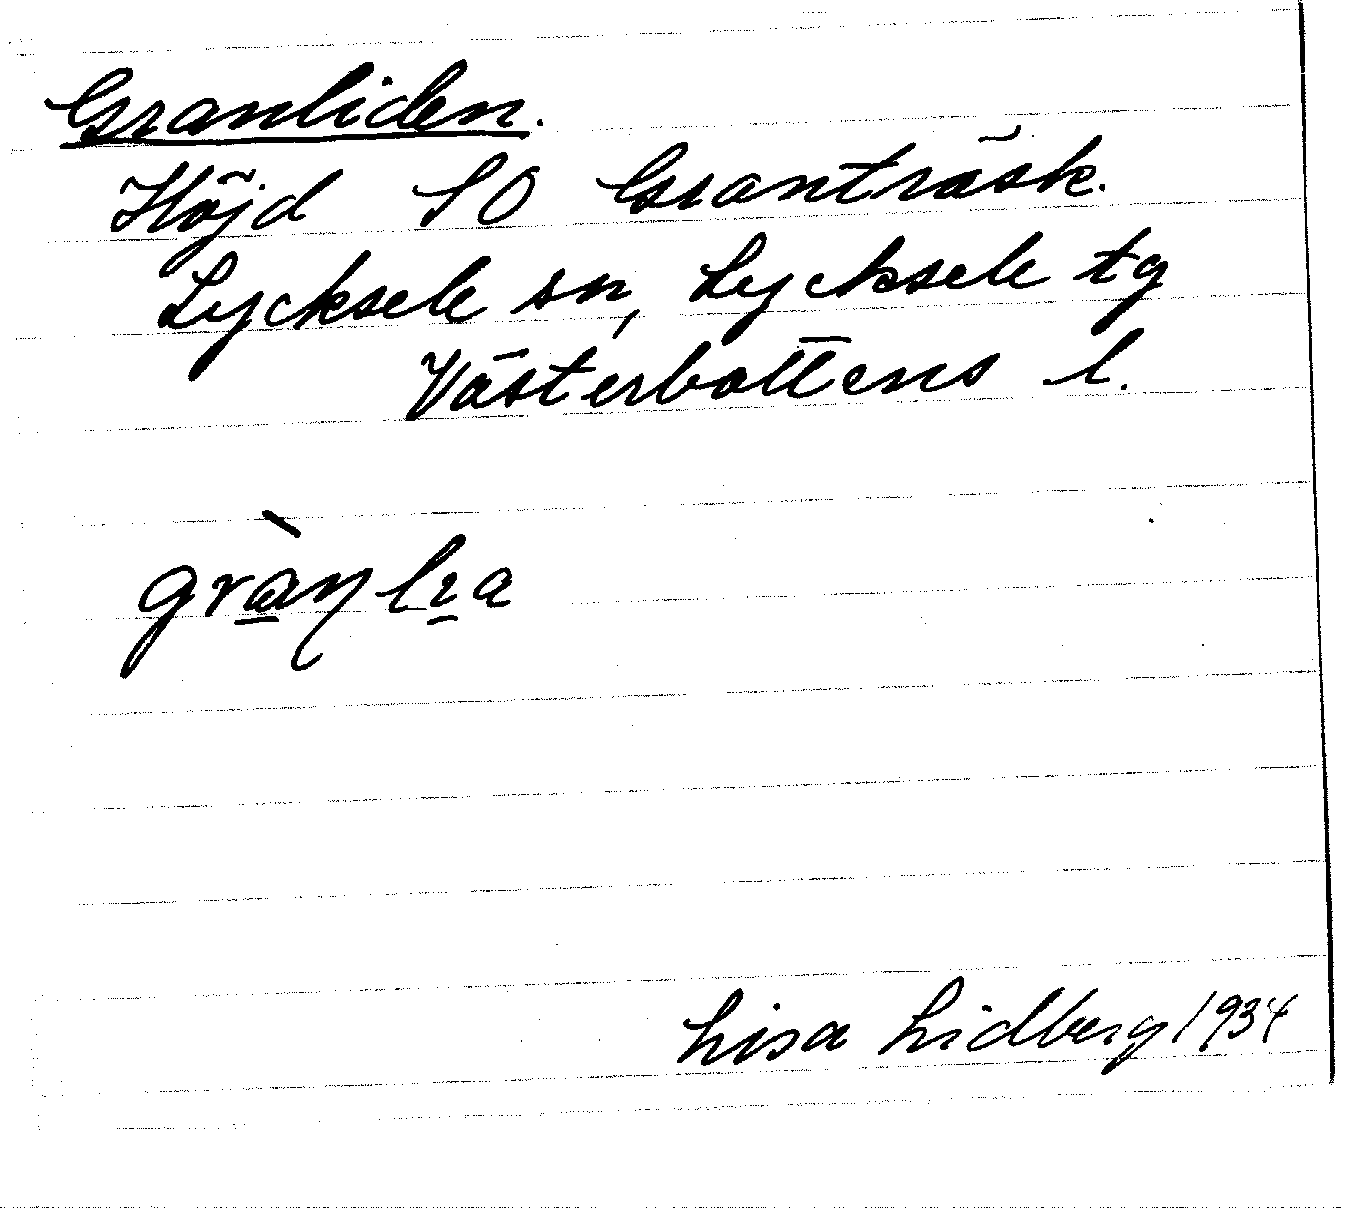 Granliden.
Höjd SO Granträsk.
Lycksele sn, Lycksele tg
Västerbottens l.
Lisa Lidberg 1934